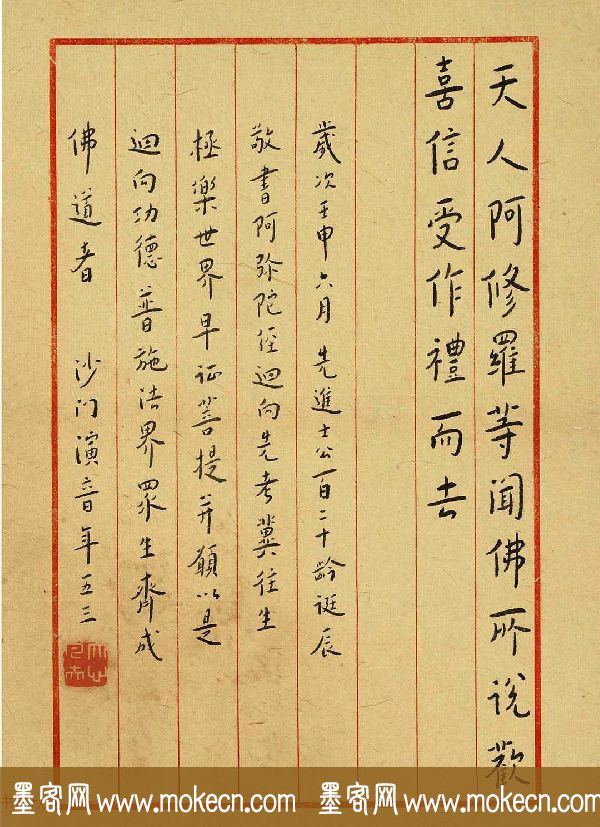 天人阿修羅等聞佛所說歡
喜信受作禮而去
歲次壬申六月先進士公百二十齡誕辰
敬書阿弥陀經迴向先考冀往生
極樂世界早証菩提并願以是
迴向功德普施法界眾生齊成
佛道者 沙门演音年五三
墨客网 www.mokecn.com 墨客网 www.mokecn.com